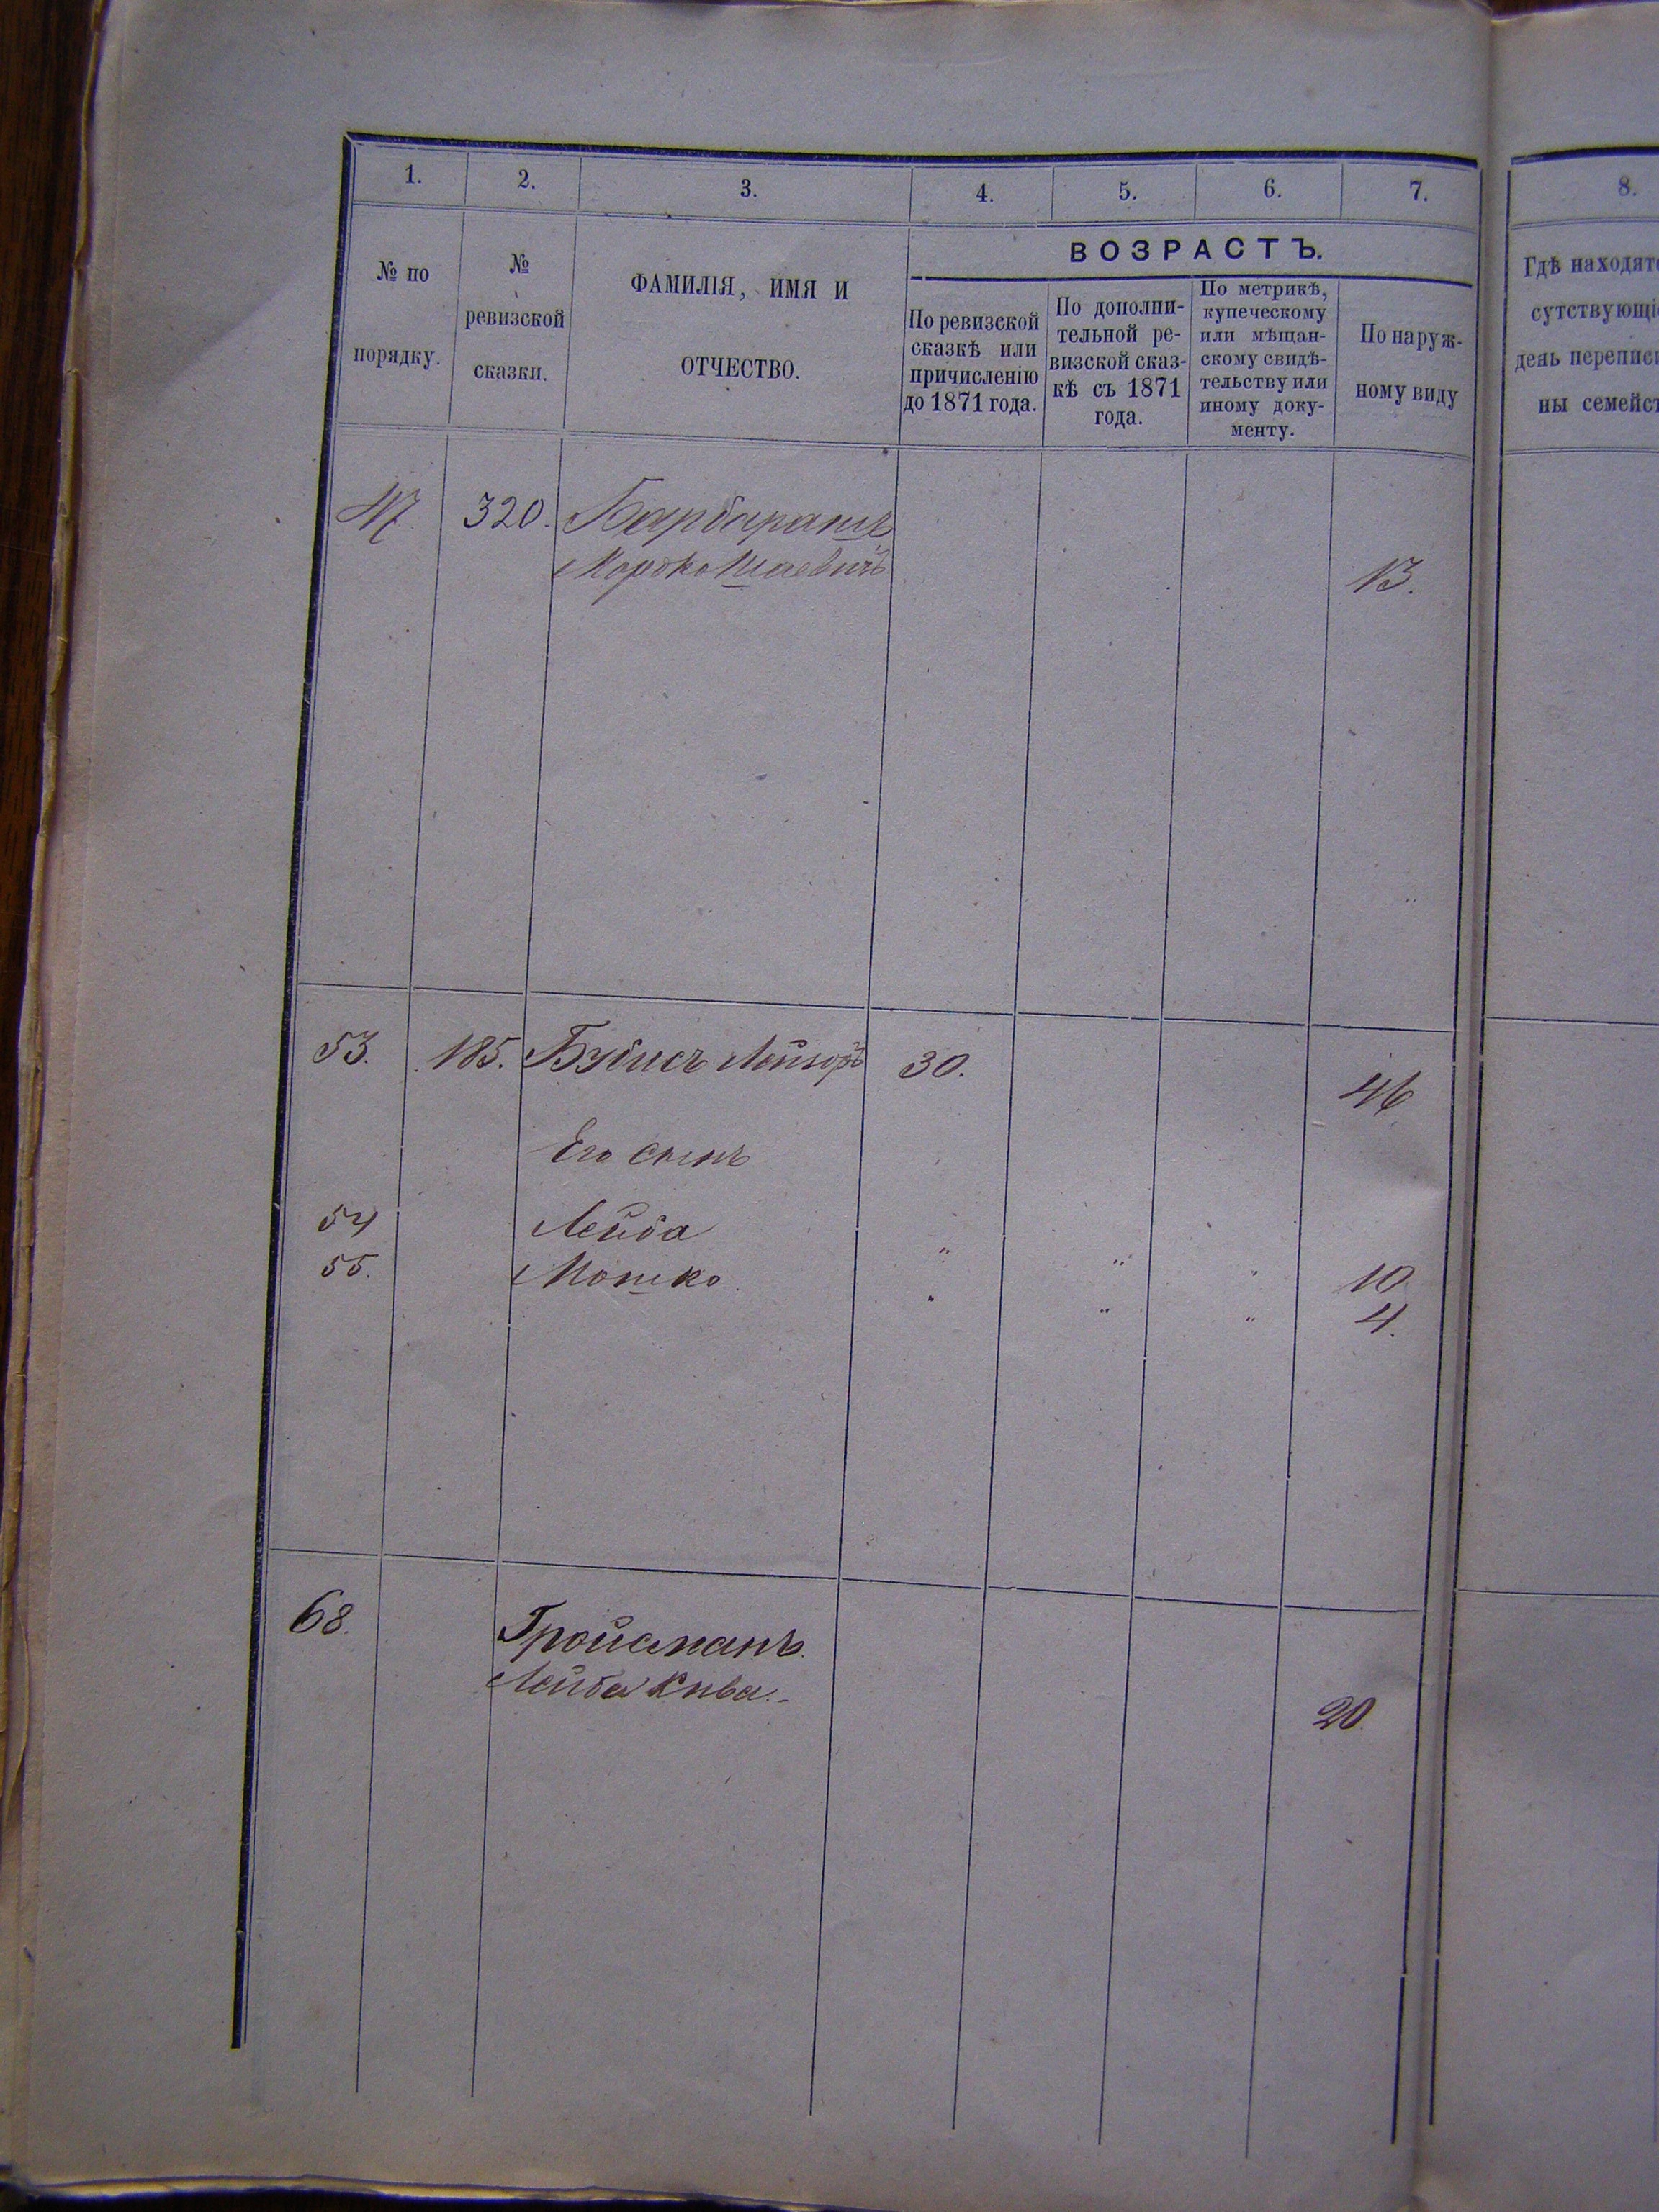 1. 2. 3. 4. 5. 6. 7. 8.
№ по
порядку.
№
ревизской
сказки.
ФАМИЛІЯ, ИМЯ И
ОТЧЕСТВО.
ВОЗРАСТЪ.
По ревизской
сказкѣ или
причисленію
до 1871 года.
По дополни-
тельной ре-
визской сказ-
кѣ съ 1871
года.
По метрикѣ,
купеческому
или мѣщан-
скому свидѣ-
тельству или
иному доку-
менту.
По наруж-
ному виду
Гдѣ находятс
сутствующі
день переписи
ны семейст
47. 320. Барбарашъ
Мордко Шаевичъ 13.
53. 185. Бубисъ Лейзоръ 30. 46
Его сынъ
54 Лейба 10
55. Мошко 4.
68. Гройсманъ.
Лейба Кива. 20